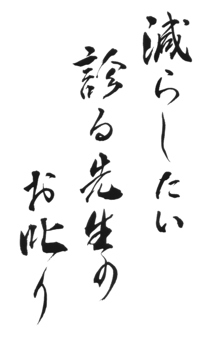 減らしたい
診る先生の
お叱り